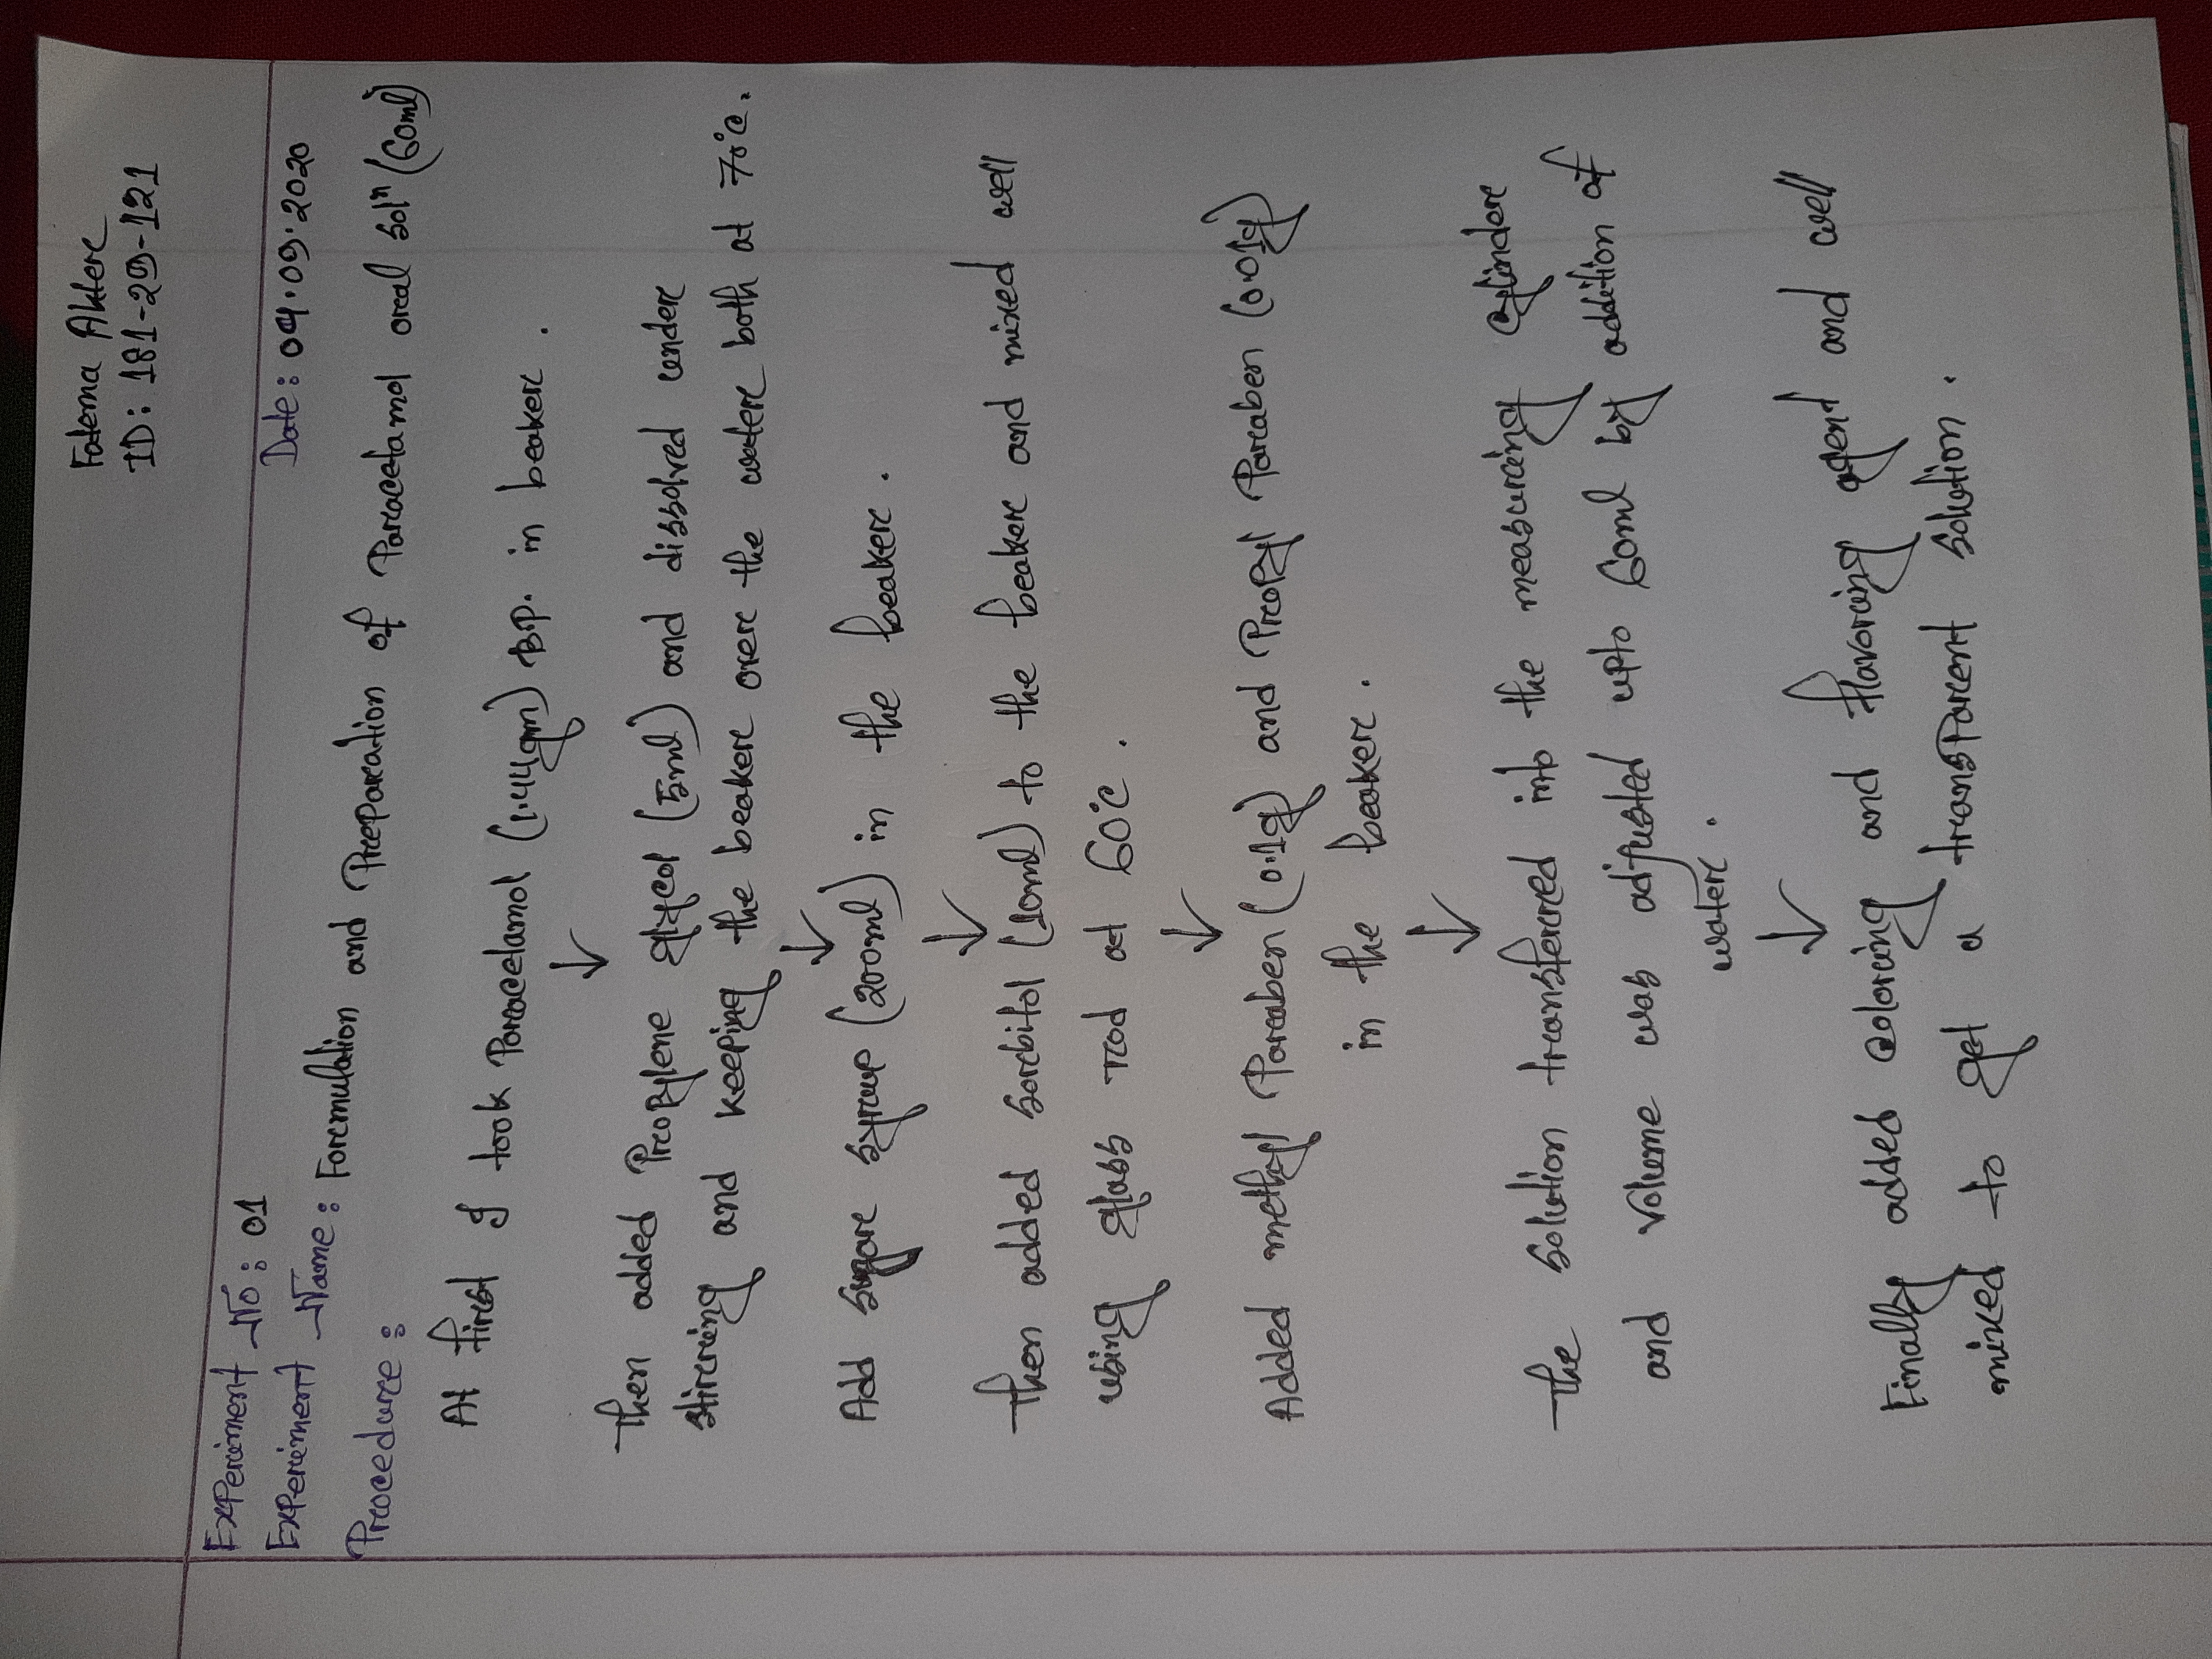 Fatema Akter
ID: 181-29-121
Experiment No: 01
Date: 04.09.2020
Experiment Name: Formulation and Preparation of Paracetamol oral solⁿ (60ml)
Procedure:
At first I took Paracetamol (1.44gm) B.P. in beaker.
↓
Then added Propylene glycol (5ml) and dissolved under
stirring and keeping the beaker over the water both at 70°C.
↓
Add sugar syrup (200ml) in the beaker.
↓
Then added sorbitol (10ml) to the beaker and mixed well
using glass rod at 60°C.
↓
Added methyl Paraben (0.1g) and Propyl Paraben (0.01g)
in the beaker.
↓
The solution transferred into the measuring cylinder
and volume was adjusted upto 60ml by addition of
water.
↓
Finally added coloring and flavoring agent and well
mixed to get a transparent solution.